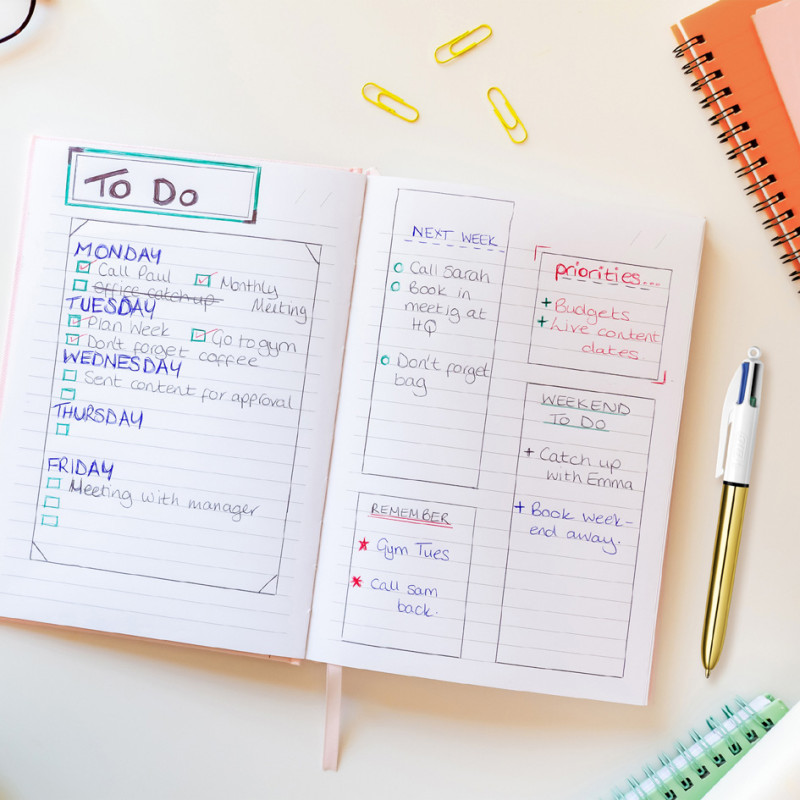 To Do
MONDAY
Call Paul
Monthly
Meeting
office catchup
TUESDAY
Plan Week
Go to gym
Don't forget coffee
WEDNESDAY
Sent content for approval
THURSDAY
FRIDAY
Meeting with manager
NEXT WEEK
Call Sarah
Book in
meetig at
HQ
Don't forget
bag
REMEMBER
Gym Tues
Call sam
back.
priorities...
+Budgets
+Live content
dates
WEEKEND
TO DO
+ Catch up
with Emma
+ Book week-
end away.